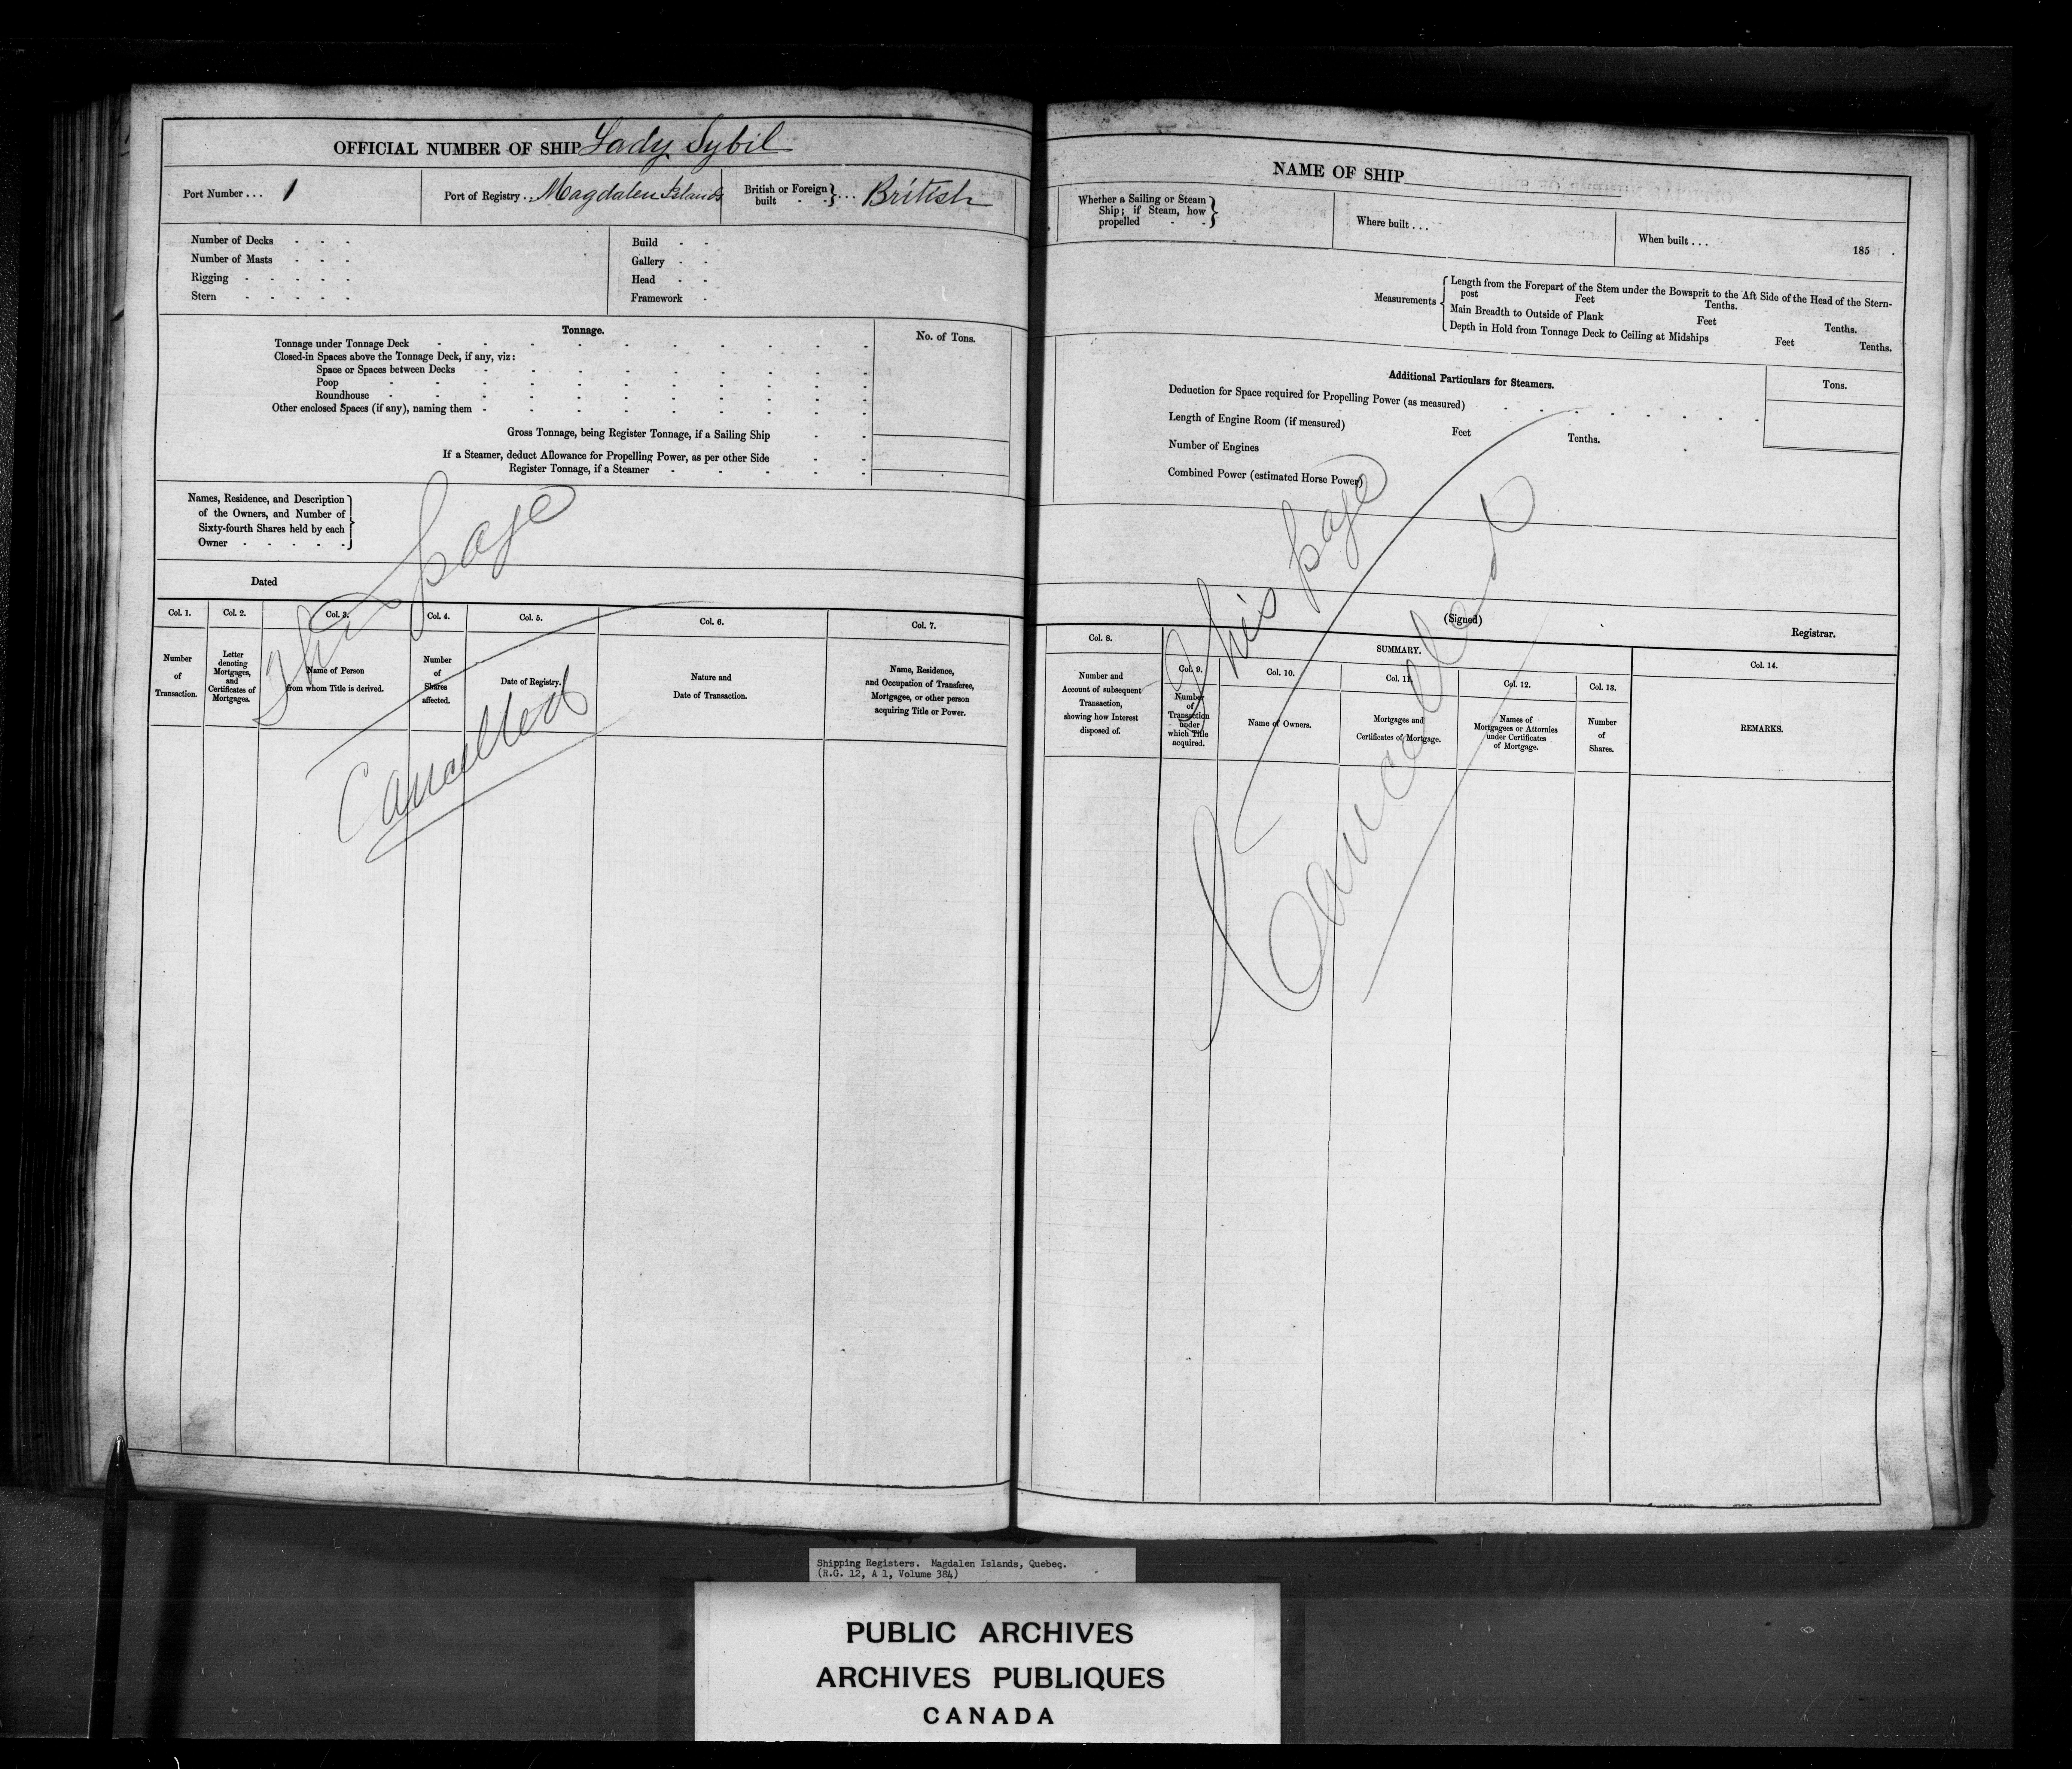 OFFICIAL NUMBER OF SHIP Lady Sybil
Port Number . . . 1
Port of Registry . . Magdalen Islands
British or Foreign built - - } . . . British
Number of Decks - - -
Number of Masts - - -
Rigging - - - - -
Stern - - - - -
Build - -
Gallery - -
Head - -
Framework -
Tonnage.
No. of Tons.
Tonnage under Tonnage Deck
Closed-in Spaces above the Tonnage Deck, if any, viz:
Space or Spaces between Decks
Poop
Roundhouse
Other enclosed Spaces (if any), naming them
Gross Tonnage, being Register Tonnage, if a Sailing Ship
If a Steamer, deduct Allowance for Propelling Power, as per other Side
Register Tonnage, if a Steamer
Names, Residence, and Description
of the Owners, and Number of
Sixty-fourth Shares held by each
Owner - - - - -
Dated
This page
Cancelled
Col. 1.
Number
of
Transaction.
Col. 2.
Letter
denoting
Mortgages,
and
Certificates of
Mortgages.
Col. 3.
Name of Person
from whom Title is derived.
Col. 4.
Number
of
Shares
affected.
Col. 5.
Date of Registry.
Col. 6.
Nature and
Date of Transaction.
Col. 7.
Name, Residence,
and Occupation of Transferee,
Mortgagee, or other person
acquiring Title or Power.
NAME OF SHIP
Whether a Sailing or Steam
Ship; if Steam, how
propelled - -
Where built . . .
When built . . . 185 .
Measurements
Length from the Forepart of the Stem under the Bowsprit to the Aft Side of the Head of the Stern-
post Feet Tenths.
Main Breadth to Outside of Plank Feet Tenths.
Depth in Hold from Tonnage Deck to Ceiling at Midships Feet Tenths.
Additional Particulars for Steamers.
Tons.
Deduction for Space required for Propelling Power (as measured)
Length of Engine Room (if measured) Feet Tenths.
Number of Engines
Combined Power (estimated Horse Power)
This page
Cancelled
(Signed) Registrar.
Col. 8.
Number and
Account of subsequent
Transaction,
showing how Interest
disposed of.
SUMMARY.
Col. 9.
Number
of
Transaction
under
which Title
acquired.
Col. 10.
Name of Owners.
Col. 11.
Mortgages and
Certificates of Mortgage.
Col. 12.
Names of
Mortgagees or Attornies
under Certificates
of Mortgage.
Col. 13.
Number
of
Shares.
Col. 14.
REMARKS.
Shipping Registers. Magdalen Islands, Quebec.
(R.G. 12, A 1, Volume 384)
PUBLIC ARCHIVES
ARCHIVES PUBLIQUES
CANADA